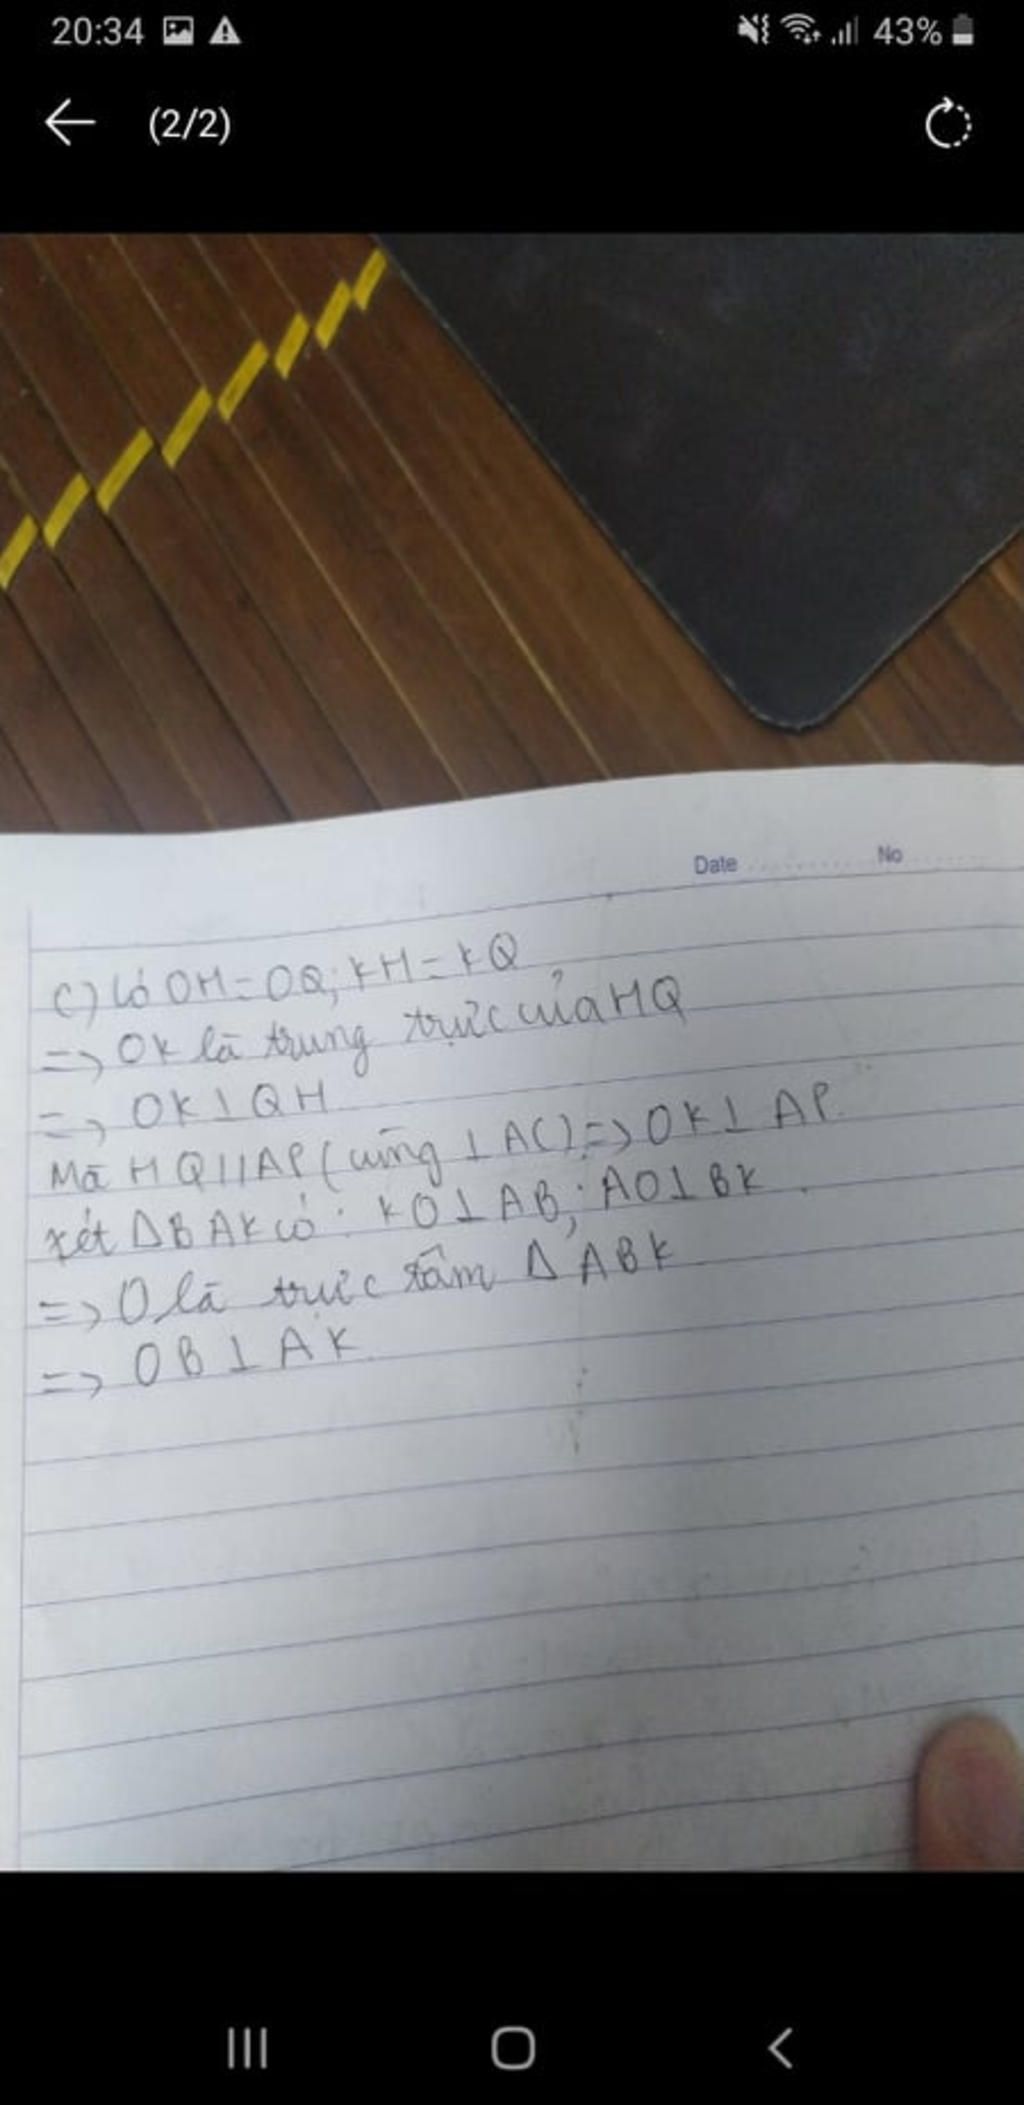 20:34 43%
(2/2)
Date No
C) Có OH = OQ; KH = KQ
=> OK là trung trực của HQ
=> OK ⊥ QH
Mà HQ // AP (cùng ⊥ AC) => OK ⊥ AP.
xét ΔBAK có: KO ⊥ AB; AO ⊥ BK.
=> O là trực tâm ΔABK
=> OB ⊥ AK.